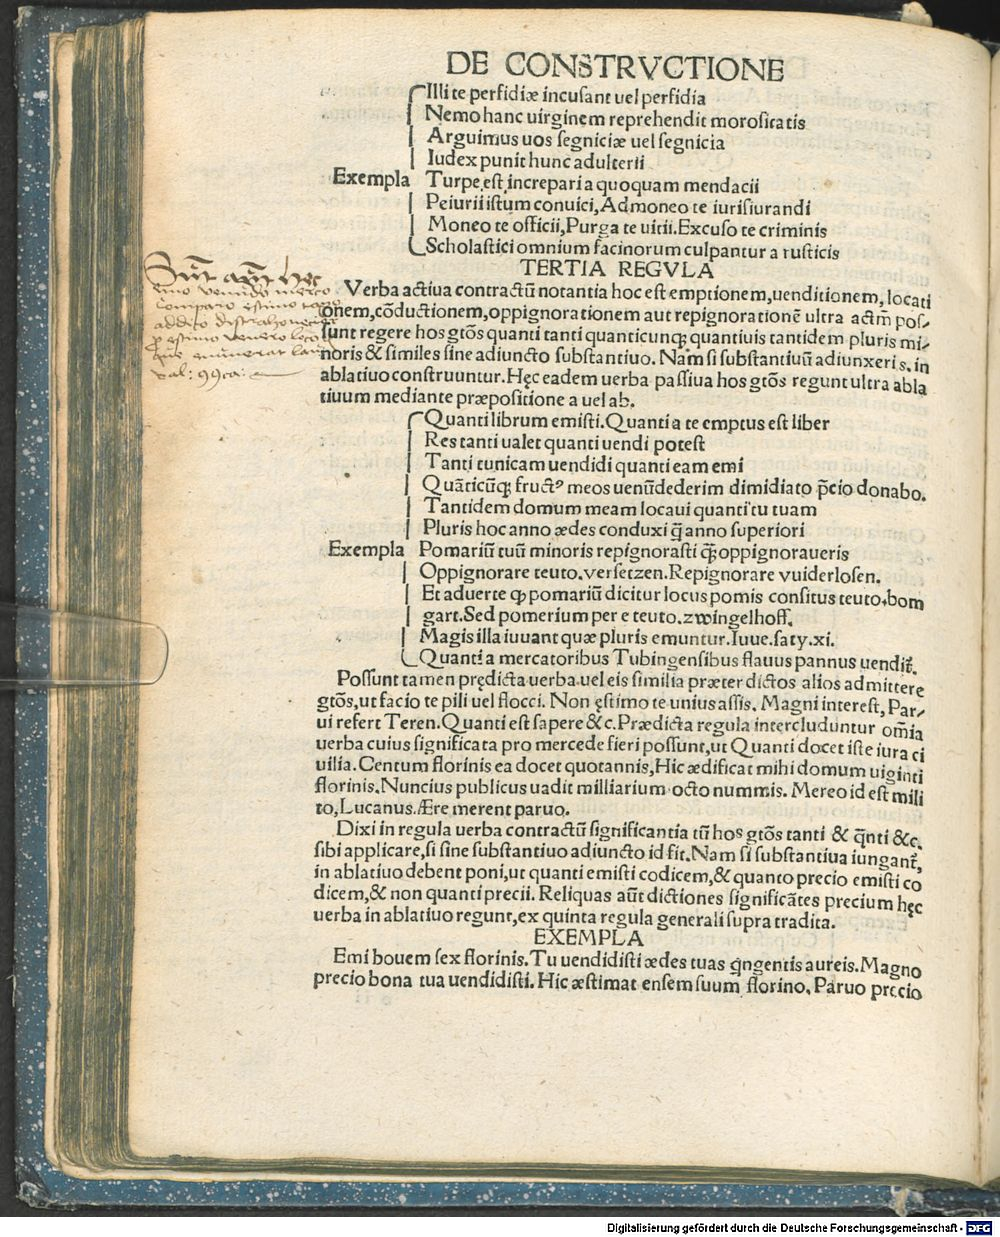 DE CONSTRVCTIONE
Illi te perfidiæ incusant uel perfidia
Nemo hanc uirginem reprehendit morositatis
Arguimus uos segniciæ uel segnicia
Iudex punit hunc adulterii
Exempla Turpe est increpari a quoquam mendacii
Peiurii istum conuici, Admoneo te iurisiurandi
Moneo te officii, Purga te uitii. Excuso te criminis
Scholastici omnium facinorum culpantur a rusticis
TERTIA REGVLA
Verba actiua contractū notantia hoc est emptionem, uenditionem, locati
onem, cōductionem, oppignorationem aut repignorationē ultra actm̄ pos-
sunt regere hos gtōs quanti tanti quanticunqꝫ quantiuis tantidem pluris mi-
noris & similes sine adiuncto substantiuo. Nam si substantiuū adiunxeris, in
ablatiuo construuntur. Hęc eadem uerba passiua hos gtōs regunt ultra abla
tiuum mediante præpositione a uel ab.
Quanti librum emisti. Quanti a te emptus est liber
Res tanti ualet quanti uendi potest
Tanti tunicam uendidi quanti eam emi
Quāticūqꝫ fructꝰ meos uenūdederim dimidiato p̄cio donabo.
Tantidem domum meam locaui quanti tu tuam
Pluris hoc anno ædes conduxi q̄ anno superiori
Exempla Pomariū tuū minoris repignorasti qꝫ̄ oppignoraueris
Oppignorare teuto. versetzen. Repignorare vuiderlosen.
Et aduerte ꝙ pomariū dicitur locus pomis consitus teuto. bom
gart. Sed pomerium per e teuto. zwingelhoff.
Magis illa iuuant quæ pluris emuntur. Iuue. saty. xi.
Quanti a mercatoribus Tubingensibus flauus pannus uendit̄.
Possunt tamen prędicta uerba uel eis similia præter dictos alios admittere
gtōs, ut facio te pili uel flocci. Non ęstimo te unius assis. Magni interest, Par-
ui refert Teren. Quanti est sapere &c. Prædicta regula intercluduntur om̄ia
uerba cuius significata pro mercede fieri possunt, ut Quanti docet iste iura ci
uilia. Centum florinis ea docet quotannis, Hic ædificat mihi domum uiginti
florinis. Nuncius publicus uadit milliarium octo nummis. Mereo id est mili
to, Lucanus. Ære merent paruo.
Dixi in regula uerba contractū significantia tū hos gtōs tanti & q̄nti &c.
sibi applicare, si sine substantiuo adiuncto id fit. Nam si substantiua iungant̄,
in ablatiuo debent poni, ut quanti emisti codicem, & quanto precio emisti co
dicem, & non quanti precii. Reliquas aūt dictiones significātes precium hęc
uerba in ablatiuo regunt, ex quinta regula generali supra tradita.
EXEMPLA
Emi bouem sex florinis. Tu uendidisti ædes tuas q̄ngentis aureis. Magno
precio bona tua uendidisti. Hic æstimat ensem suum florino, Paruo precio
emo vendo
comparo estimo
addito distraho
Digitalisierung gefördert durch die Deutsche Forschungsgemeinschaft - DFG